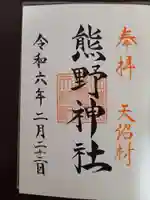 奉拝 天沼村
熊野神社
令和六年二月二十三日